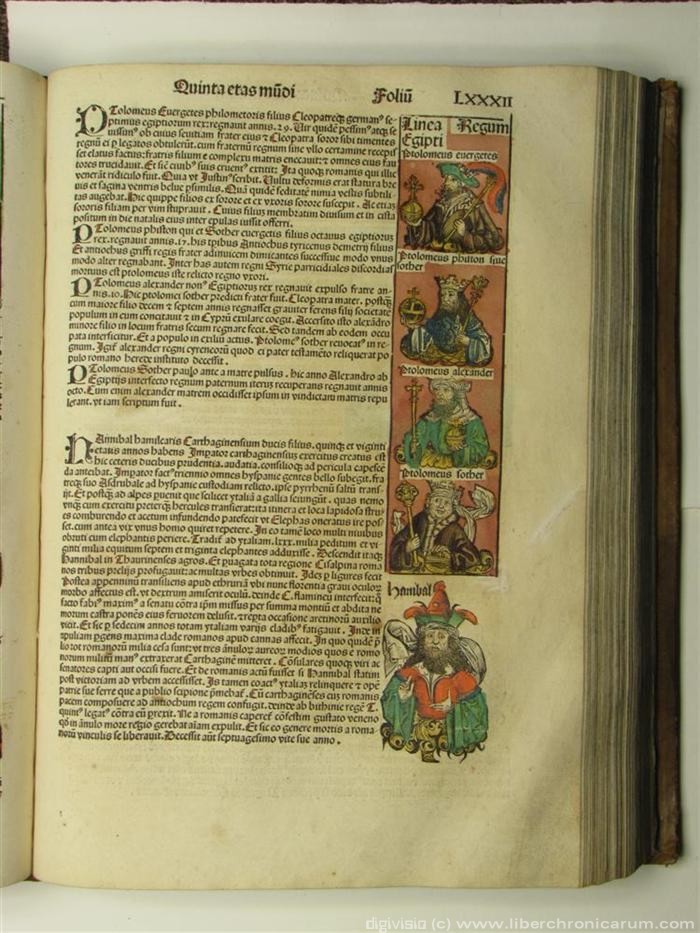 Quinta etas mũdi Foliũ LXXXII
PTolomeus Euergetes philometoris filius Cleopatreqꝫ german⁹ se-
ptimus egiptiorum rex: regnauit annis .29. Uir quidẽ pessim⁹ atqꝫ se
uissim⁹ ob cuius seuitiam frater eius ⁊ Cleopatra soror sibi timentes
regnũ ei ꝑ legatos obtulerũt. cum fraternũ regnum sine vllo certamine recepis
set elatus factus: fratris filium e complexu matris enecauit: ⁊ omnes eius fau
tores trucidauit. Et sic ciuib⁹ suis cruent⁹ extitit: Ita quoqꝫ romanis qui illic
venerãt ridiculo fuit. Quia vt Justin⁹ scribit. Uultu deformis erat statura bre
uis et sagina ventris belue ꝓsimilis. Quã quidẽ feditatẽ nimia vestis subtili
tas augebat. Hic quippe filios ex sorore et ex vxoris sorore suscepit. Ac etiã
sororis filiam per vim stuprauit. Cuius filius membratim diuisum et in cista
positum in die natalis eius inter epulas iussit offerri.
PTolomeus phiston qui et Sother euergetis filius octauus egiptiorum
rex. regnauit annis .17. his tpibus Antiochus tyricenus demetrij filius
Et antiochus griffi regis frater adinuicem dimicantes successiue modo vnus
modo alter regnabant. Inter has autem regni Syrie parricidiales discordias
mortuus est ptolomeus iste relicto regno vxori.
PTolomeus alexander non⁹ Egiptiorum rex regnauit expulso fratre an-
nis .10. Hic ptolomei sother predicti frater fuit. Cleopatra mater. postqꝫ
cum maiore filio decem ⁊ septem annis regnasset grauiter ferens filij societatẽ
populum in eum concitauit ⁊ in Cyprũ exulare coegit. Accersito isto alexãdro
minore filio in locum fratris secum regnare fecit. Sed tandem ab eodem occu
pata interficitur. Et a populo in exiliũ actus. Ptolome⁹ sother reuocat⁹ in re-
gnum. Igiť alexander regni cyrenorũ quod ei pater testamẽto reliquerat po
pulo romano herede instituto decessit.
PTolomeus Sother paulo ante a matre pulsus. hic anno Alexandro ab
Egiptijs intersecto regnum paternum iterũ recuperans regnauit annis
octo. Cum enim alexander matrem occidisset ipsum in vindictam matris repu
lerant. vt iam scriptum fuit.
HAnnibal hamilcaris Carthaginensium ducis filius. quinqꝫ et viginti
etatis annos habens Imperator carthaginensius exercitus creatus est
hic ceteris ducibus prudentia. audatia. consilioqꝫ ad pericula capescẽ
da anteibat. Impator fact⁹ triennio omnes hyspanie gentes bello subegit. fra
treqꝫ suo Asdrubale ad hyspanie custodiam relicto. ipse pyrrhenũ saltũ transi
jt. Et postqꝫ ad alpes puenit que scilicet ytaliã a gallia seiungũt. quas nemo
vnqꝫ cum exercitu preterqꝫ hercules transierat: ita itinera et loca lapidosa stru
es comburendo et acetum infundendo patefecit vt Elephas oneratus ire pos
set. cum antea vix vnus homo quiret repetere. In eo tamẽ loco multi niuibus
obruti cum elephantis periere. Tradiť ad ytaliam. lxxx. milia peditum et vi
ginti milia equitum septem et triginta elephantes adduxisse. Descendit itaqꝫ
Hannibal in Thaurinenses agros. Et puagata tota regione Cisalpina roma
nos tribus prelijs profugauit: ac multas vrbes obtinuit. Ides ꝑ ligures fecit
Postea appenninũ transiliens apud ethruriã vbi nunc florentia graui oculoꝝ
morbo affectus est. vt dextrum amiserit oculũ. deinde C. flamineũ interfecit: q̃
facto fabi⁹ maxim⁹ a senatu cõtra ipm̃ missus per summa montiũ et abdita ne
morum castra ponẽs eius feruorem delusit. ⁊ repta occasione arctinorũ auxilio
vicit. Et sic ꝑ sedecim annos totam ytaliam varijs cladib⁹ fatigauit. Inde in
apuliam ꝑgens maxima clade romanos apud cannas affecit. In quo quidẽ p̃
lio tot romanorũ milia cesa sunt: vt tres ãnulorꝫ aureorꝫ modios quos e roma
norum militũ man⁹ extraxerat Carthaginẽ mitteret. Cõsulares quoqꝫ viri ac
senatores capti aut occisi fuere. Et de romanis actũ fuisset si Hannibal statim
post victoriam ad vrbem accessisset. Is tamen coact⁹ ytaliaꝫ relinquere ⁊ opẽ
patrie sue ferre que a publio scipione pꝛmebať. Cũ carthaginẽses cuꝫ romanis
pacem composuere ad antiochum regem confugit. deinde ab bithinie regẽ T.
quint⁹ legat⁹ cõtra eũ ꝓrexit. Ne a romanis caperet̃ cõfestim gustato veneno
qd̃ in ãnulo more regio gerebat aĩam expulit. Et sic eo genere mortis a roma-
norũ vinculis se liberauit. Decessit aũt septuagesimo vite sue anno.
Linea Regum
Egipti
Ptolomeus euergetes
Ptolomeus phitton siue
sother
Ptolomeus alexander
Ptolomeus sother
Hanibal
digivisio (c) www.liberchronicarum.com